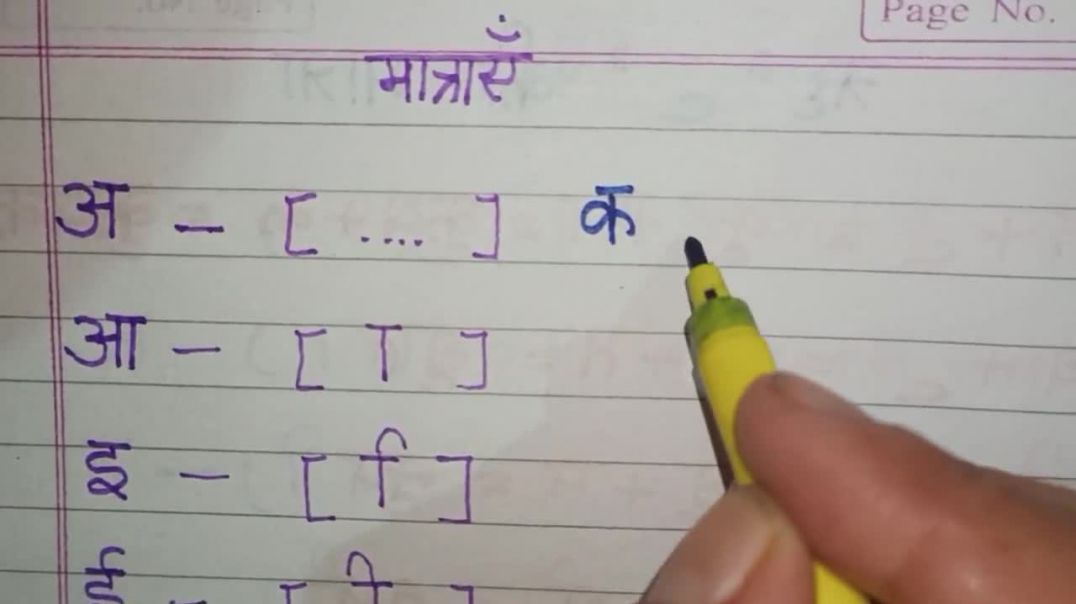 Page No.
मात्राएँ
अ - [ .... ] क
आ - [ ा ]
इ - [ ि ]
ई - [ ी ]